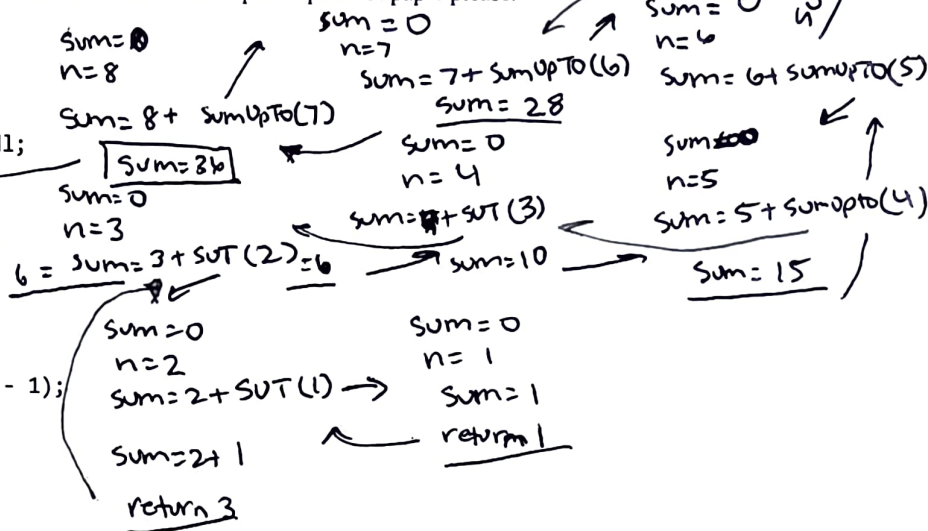 sum=0
n=8
sum=8+ sumUpTo(7)
sum=36
sum=0
n=7
sum=7+sumUpTo(6)
sum=28
sum=0
n=6
sum=6+sumUpTo(5)
sum
n=5
sum=5+sumupto(4)
sum=15
sum=0
n=4
sum= +SUT(3)
sum=10
sum=0
n=3
6=sum=3+SUT(2)=6
sum=0
n=2
sum=2+SUT(1)
sum=2+1
return 3
sum=0
n=1
sum=1
return 1
- 1);